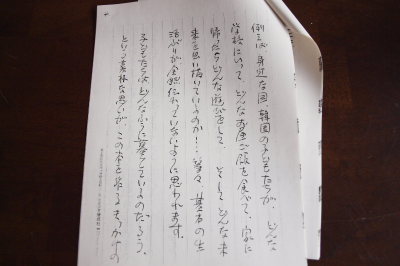 例えば、身近な国、韓国の子どもたちが、どんな
学校にいって、どんなお昼ご飯を食べて、家に
帰ったらどんな遊びをして、そしてどんな未
来を思い描いているのか…等々、普通の生
活ぶりが全然伝わっていないように思われます。
子どもたちは、どんなふうに暮らしているのだろう。
という素朴な思いが、この本を作るきっかけの